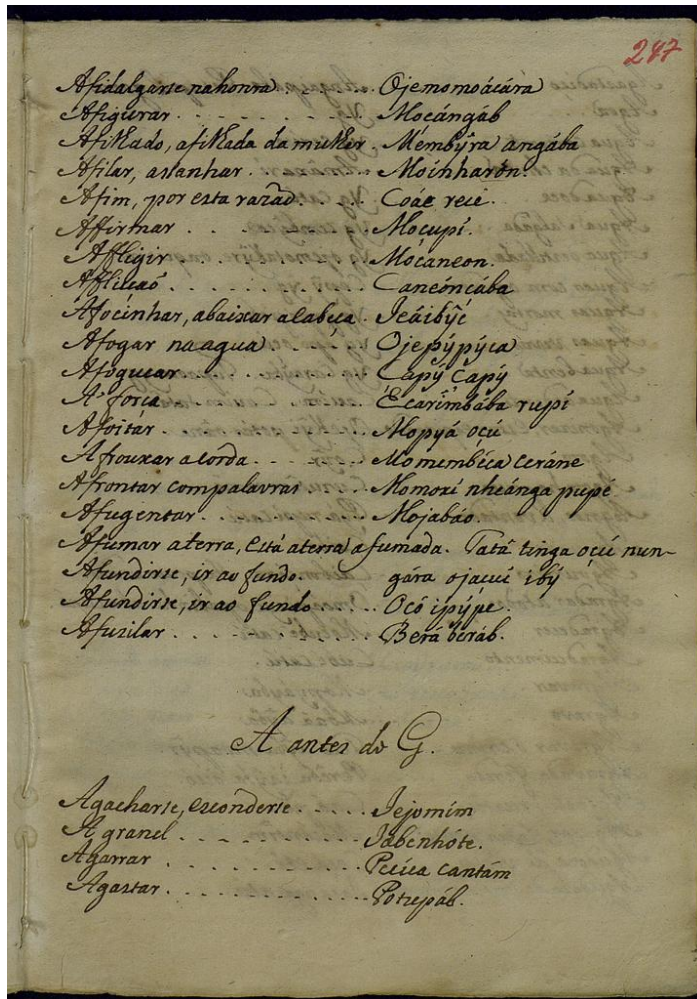 247
Afidalgarse na honra . . . . . Ojemomoácára
Afigurar . . . . . . . . . Mocángáb
Afilhado, afilhada da mulher. Membỹra angába
Afilar, assanhar . . . . . . Moinharón.
Afim, por esta razaõ. . . . Coáe recé.
Affirmar . . . . . . . . Mocupí.
Affligir . . . . . . . . . Mócaneon.
Afflicaó . . . . . . . . . . Caneónçába
Afocinhar, abaixar a cabeça. Jeáibỹc
Afogar na agua . . . . . . Ojepýpýca
Afoguear . . . . . . . . . . Çapý Çapý
A' força . . . . . . . . . . Ecarimbába rupí
Afoitar . . . . . . . . . . Mopyá oçú
Afrouxar a corda . . . . . . Momembéca ceráne
Afrontar com palavras . . . Momoxí nheánga pupé
Afugentar . . . . . . . . . Mojabáo.
Afumar a terra, está a terra afumada. Tatâ tinga oçú nun-
Afundirse, ir ao fundo. gára ojacuí ibý
Afundirse, ir ao fundo . . . . Ocó ipýpe.
Afuzilar . . . . . . . . . . Berá beráb.
A antes do G.
Agacharse, esconderse . . . . . Jejomím
A granel . . . . . . . . . . Jabenhóte.
Agarrar . . . . . . . . . . Pecica cantám
Agastar . . . . . . . . . . Potupáb.